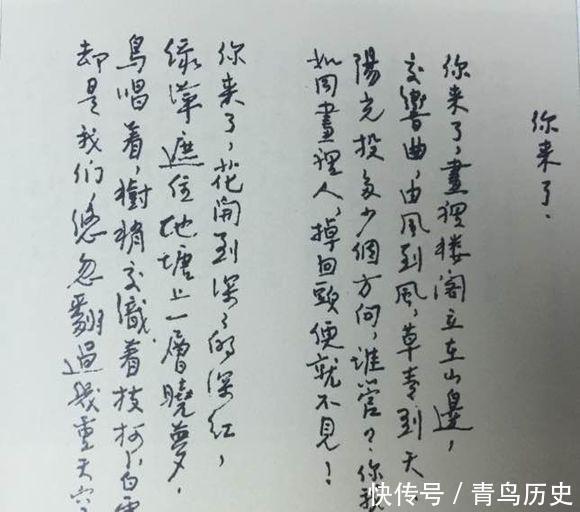 你来了.
你来了,畫裡楼阁立在山邊,
交響曲,由風到風,草青到天
陽光投多少個方向,谁管?你我
如同畫裡人,掉回頭便就不見!
你来了,花開到深々的深红,
绿萍遮住地塘上一層曉夢,
鸟唱着,樹梢交織着枝柯,白雲
却是我们,悠忽翻過幾重天空
快传号/青鸟历史